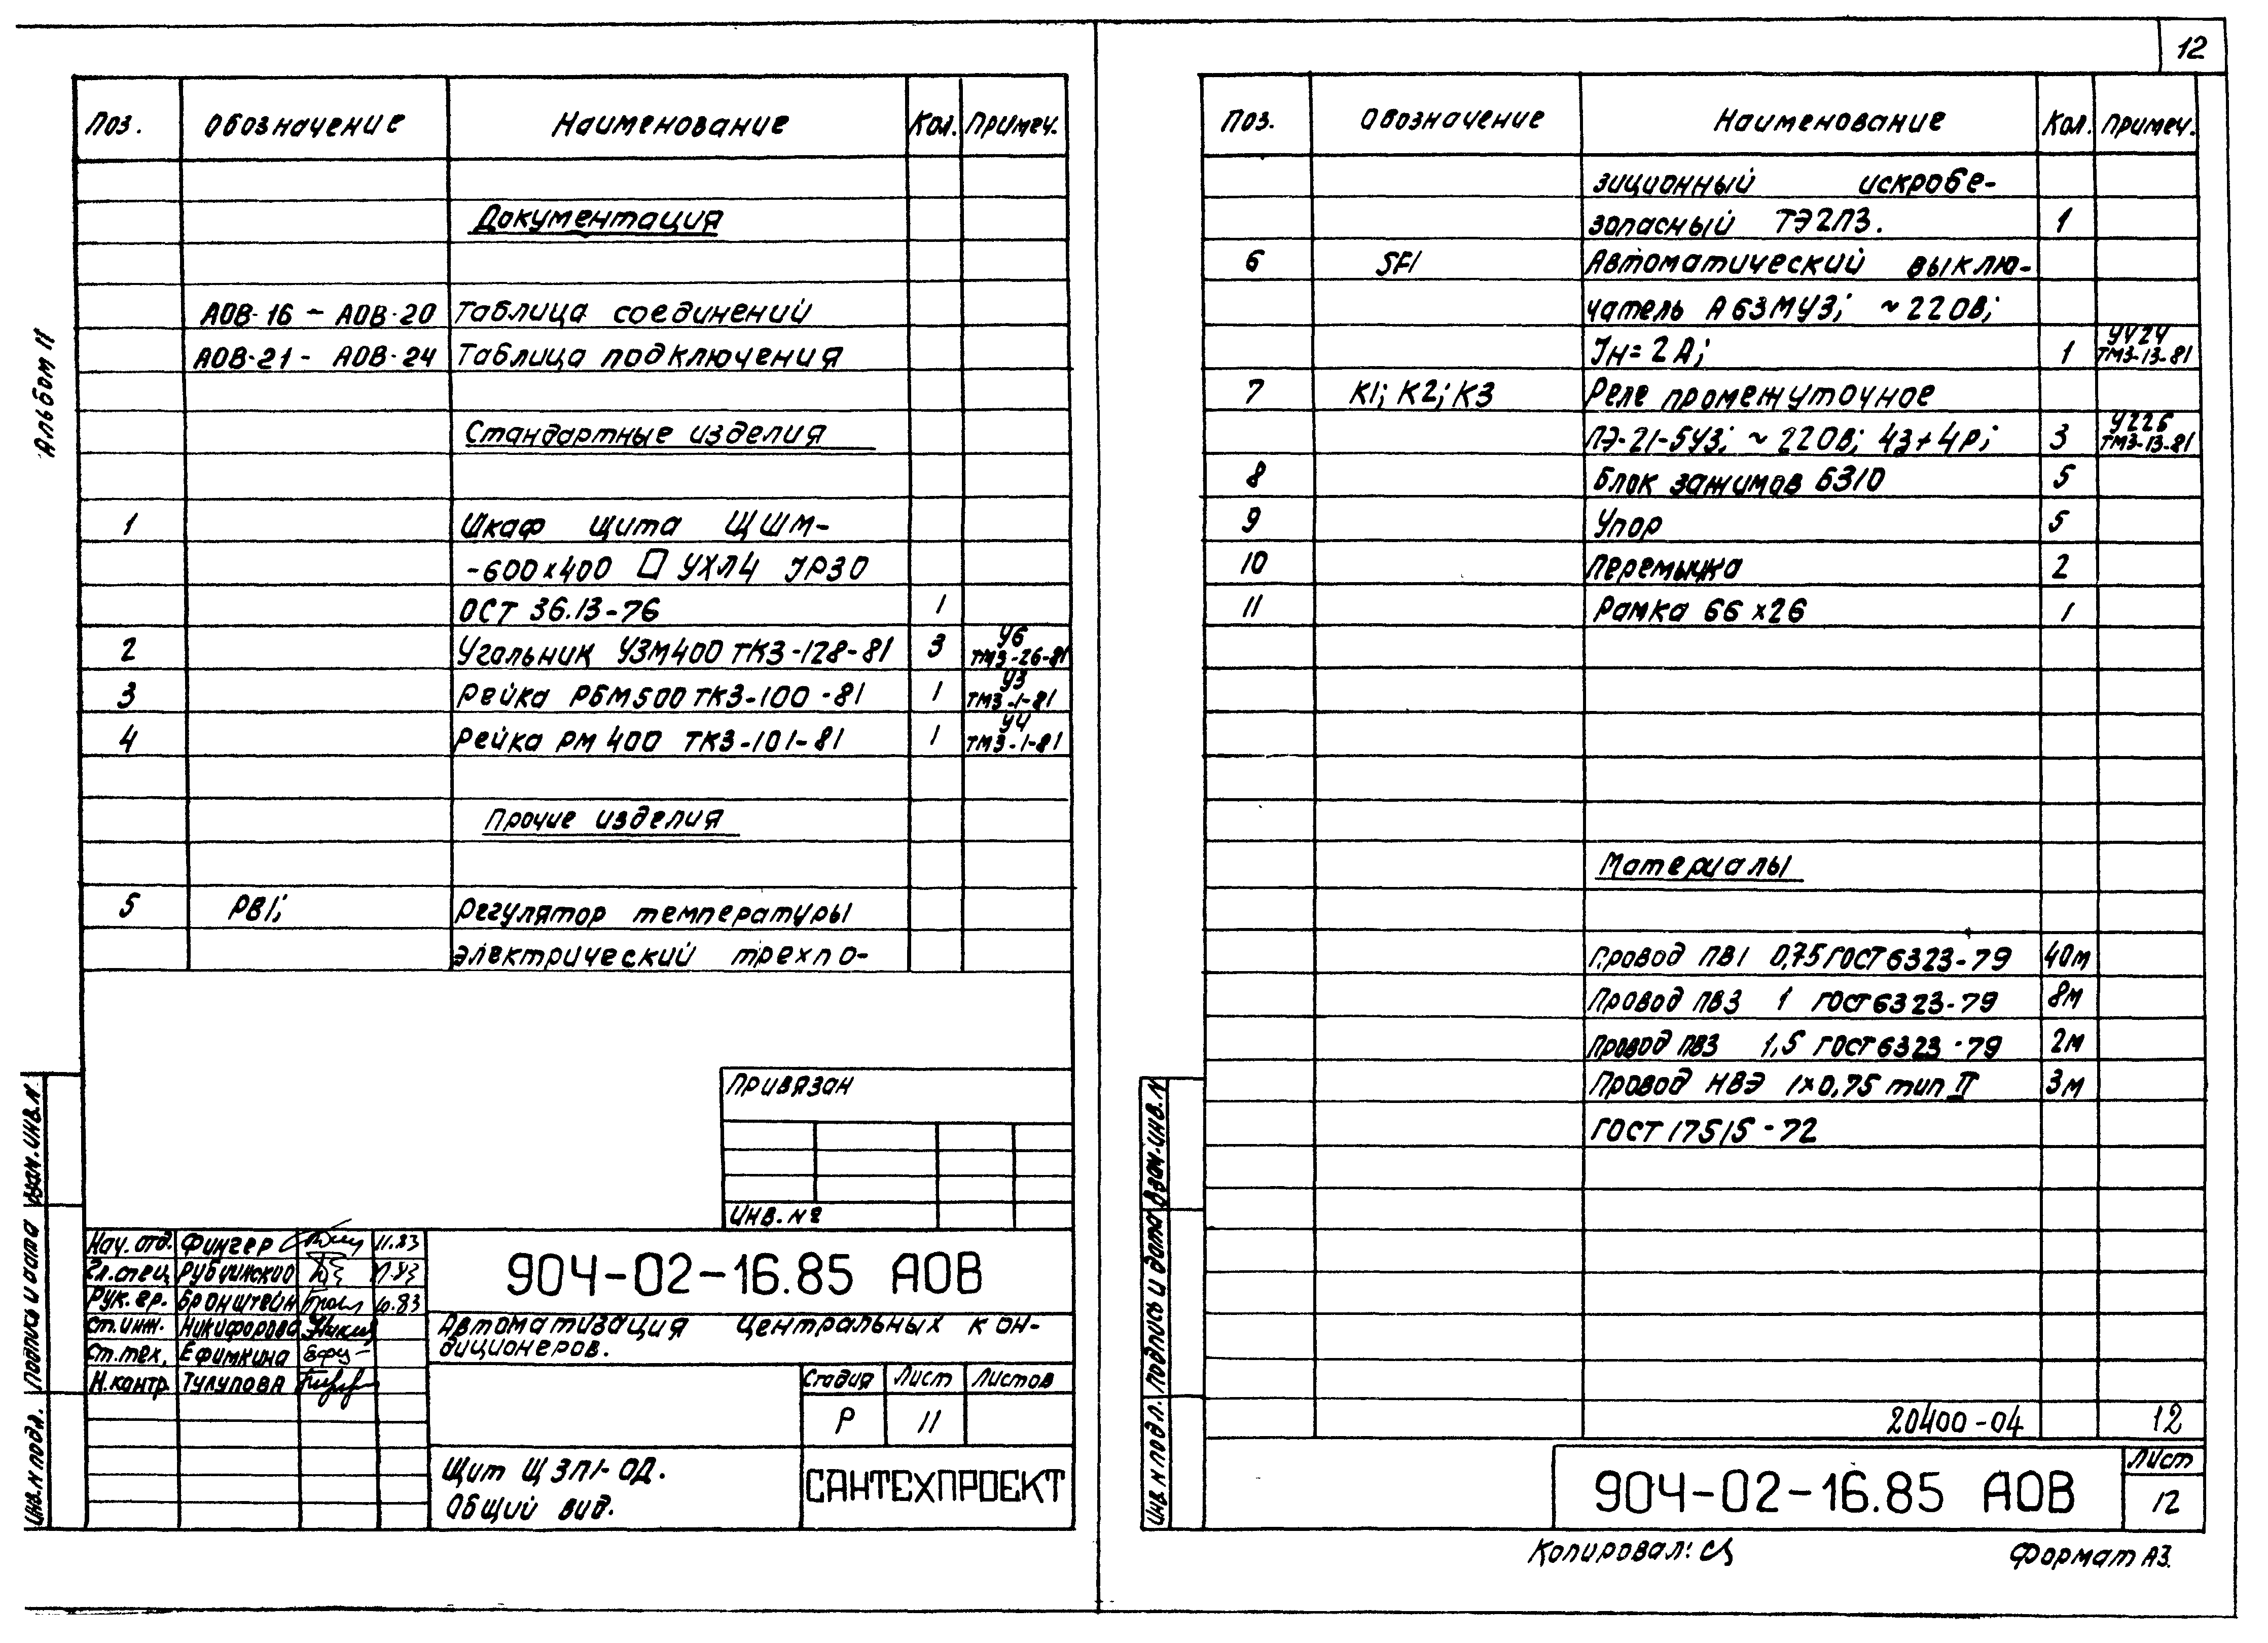 12
Альбом II
Поз. Обозначение Наименование Кол. Примеч.
Документация
АОВ-16 – АОВ-20 Таблица соединений
АОВ-21 - АОВ-24 Таблица подключения
Стандартные изделия
1 Шкаф щита ЩШМ-
-600х400 УХЛ4 IP30
ОСТ 36.13-76 1
2 Угольник УЗМ400 ТК3-128-81 3 У6 ТМ3-26-81
3 Рейка РБМ500 ТК3-100-81 1 У3 ТМ3-1-81
4 Рейка РМ 400 ТК3-101-81 1 У4 ТМ3-1-81
Прочие изделия
5 РВ1; Регулятор температуры
электрический трехпо-
Привязан
Инв. №
Нач. отд. Фингер 11.83
Гл. спец. Рубчинский 11.83
Рук. гр. Бронштейн 10.83
Ст. инж. Никифорова
Ст. тех. Ефимкина
Н. контр. Тулупова
904-02-16.85 АОВ
Автоматизация центральных кон-
диционеров.
Стадия Лист Листов
Р 11
Щит ЩЗП1-ОД.
Общий вид.
САНТЕХПРОЕКТ
Инв. N подл. Подпись и дата Взам. инв. N
Поз. Обозначение Наименование Кол. Примеч.
зиционный искробе-
зопасный ТЭ2П3. 1
6 SF1 Автоматический выклю-
чатель А63МУ3; ~220В;
Iн=2А; 1 У424 ТМ3-13-81
7 К1; К2; К3 Реле промежуточное
ПЭ-21-5У3; ~220В; 4з+4р; 3 У226 ТМ3-13-81
8 Блок зажимов Б310 5
9 Упор 5
10 Перемычка 2
11 Рамка 66х26 1
Материалы
Провод ПВ1 0,75 ГОСТ 6323-79 40м
Провод ПВ3 1 ГОСТ 6323-79 8м
Провод ПВ3 1,5 ГОСТ 6323-79 2м
Провод НВЭ 1х0,75 тип II 3м
ГОСТ 17515-72
20400-04 12
Инв. N подл. Подпись и дата Взам. инв. N
904-02-16.85 АОВ
Лист
12
Копировал:
Формат А3.